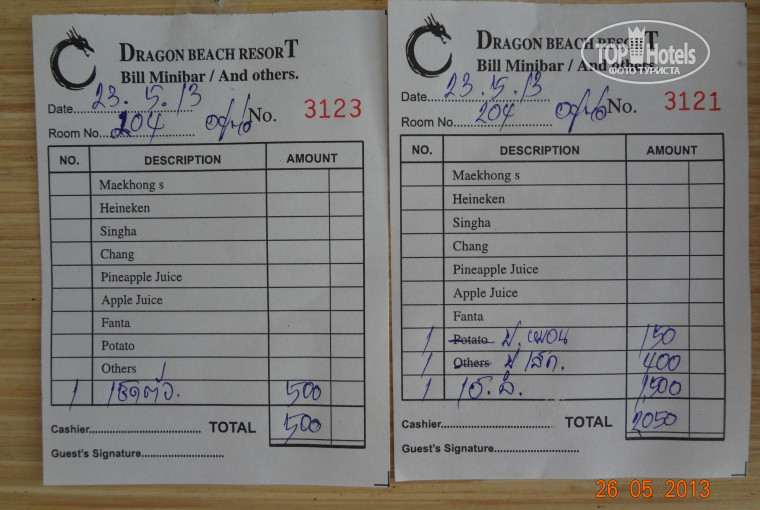 DRAGON BEACH RESORT
Bill Minibar / And others.
Date 23.5.13
No. 3123
Room No. 204
NO. DESCRIPTION AMOUNT
Maekhong s
Heineken
Singha
Chang
Pineapple Juice
Apple Juice
Fanta
Potato
Others
1 เช็ดตัว. 500
Cashier TOTAL 500
Guest's Signature
DRAGON BEACH RESORT
Bill Minibar / And others.
TOP Hotels
ФОТО ТУРИСТА
Date 23.5.13
No. 3121
Room No. 204
NO. DESCRIPTION AMOUNT
Maekhong s
Heineken
Singha
Chang
Pineapple Juice
Apple Juice
Fanta
1 Potato 150
1 Others 400
1 1,500
Cashier TOTAL 2050
Guest's Signature
26 05 2013